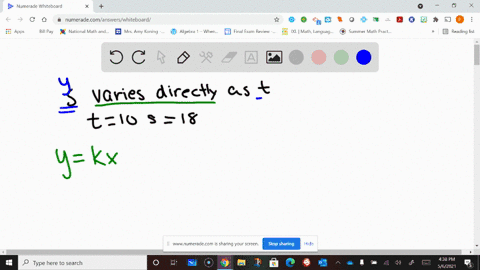 Numerade Whiteboard
numerade.com/answers/whiteboard/
Apps
Bill Pay
National Math and
Mrs. Amy Koning
Algebra
Final Exam Review
Summer Math Pract
Reading list
A
y
s varies directly as t
t=10 s=18
y=kx
www.numerade.com is sharing your screen.
Stop sharing
Hide
4:34 PM
5/6/2021